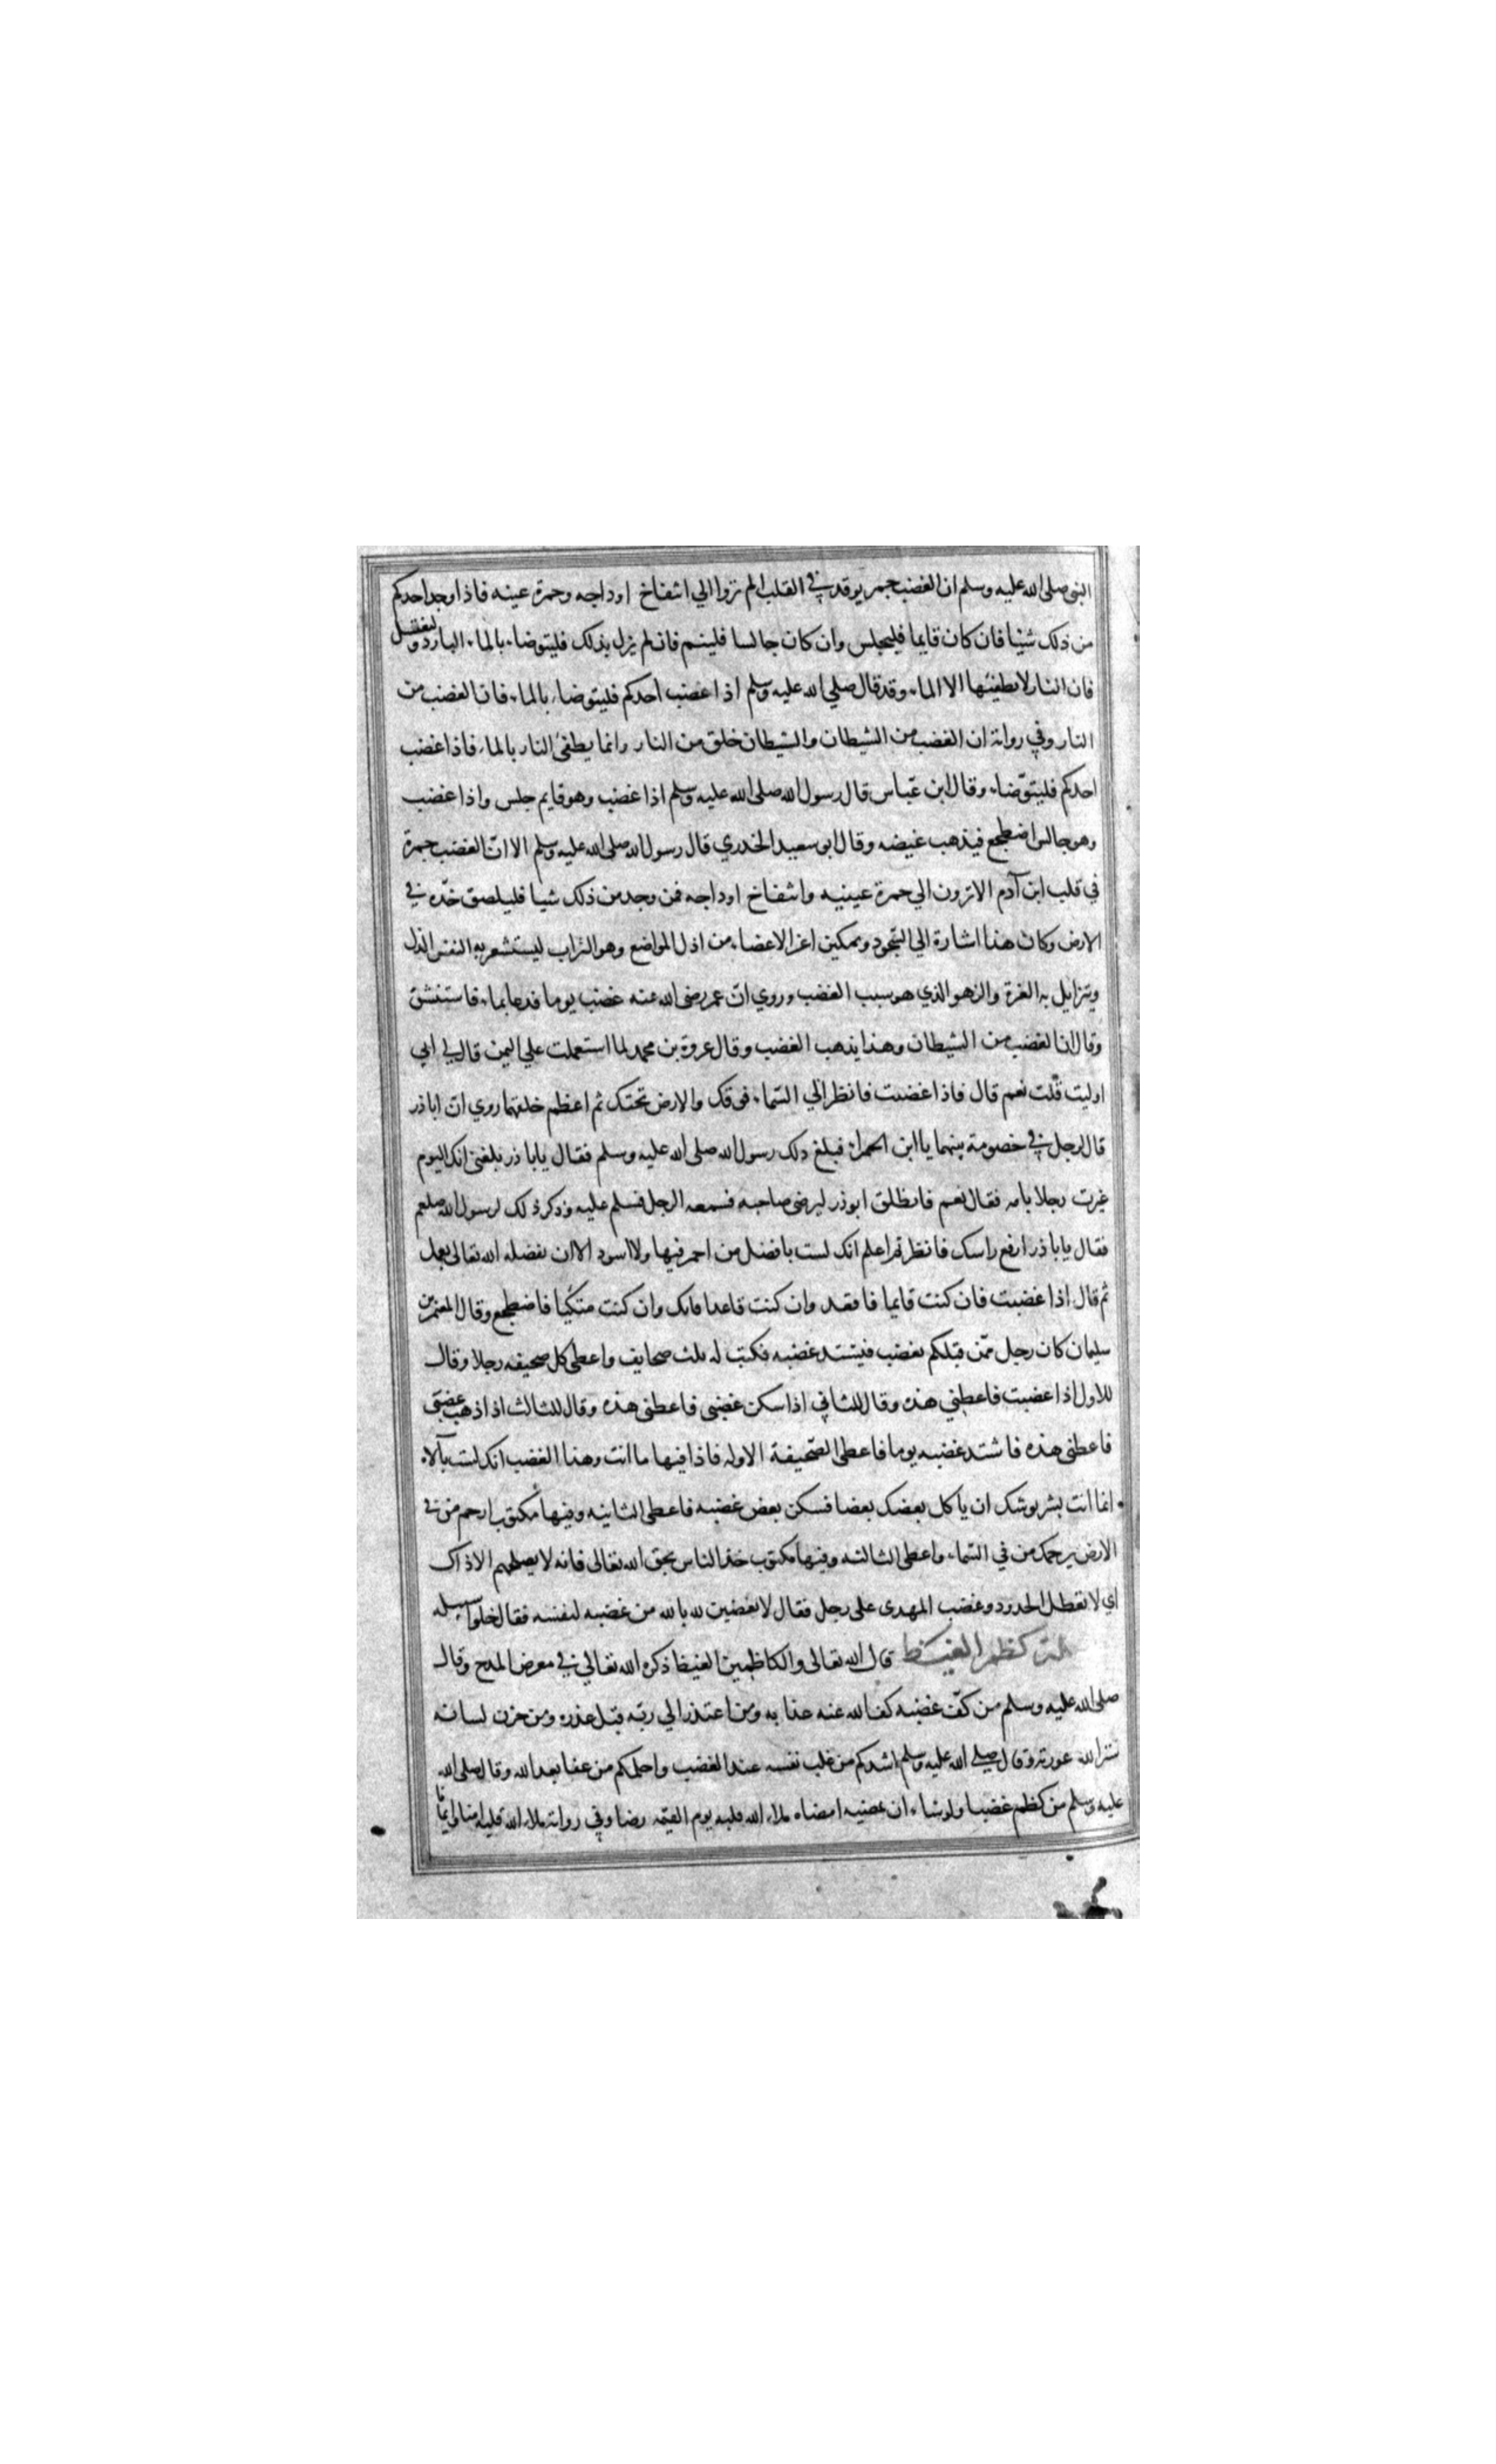 النبي صلى الله عليه وسلم ان الغضب جمر يوقد في القلب الم تروا الي انتفاخ اوداجه وحمرة عينه فاذا وجد احدكم
من ذلك شيئا فان كان قايما فليجلس وان كان جالسا فلينم فان لم يزل بذلك فليتوضاء بالماء البارد وليغتسل
فان النار لا يطفئها الا الماء وقد قال صلي الله عليه وسلم اذا غضب احدكم فليتوضاء بالماء فان الغضب من
النار وفي رواية ان الغضب من الشيطان والشيطان خلق من النار وانما يطفئ النار بالماء فاذا غضب
احدكم فليتوضاء وقال ابن عباس قال رسول الله صلى الله عليه وسلم اذا غضب وهو قايم جلس واذا غضب
وهو جالس اضطجع فيذهب غيضه وقال ابو سعيد الخدري قال رسول الله صلى الله عليه وسلم الا ان الغضب جمرة
في قلب ابن آدم الا ترون الي حمرة عينيه وانتفاخ اوداجه فمن وجد من ذلك شيا فليلصق خده في
الارض وكان هذا اشارة الي السجود وتمكين اعز الاعضاء من اذل المواضع وهو التراب ليستشعر به النفس الذل
ويتزايل به العزة والزهو الذي هو سبب الغضب وروي ان عمر رضي الله عنه غضب يوما فدعا بماء فاستنشق
وقال ان الغضب من الشيطان وهذا يذهب الغضب وقال عروة بن محمد لما استعملت علي اليمن قال لي ابي
اوليت قلت نعم قال فاذا غضبت فانظر الي السماء فوقك والارض تحتك ثم اعظم خلقهما روي ان اباذر
قال لرجل في خصومة بينهما يا ابن الحمراء فبلغ ذلك رسول الله صلى الله عليه وسلم فقال يابا ذر بلغني انك اليوم
عيرت رجلا بامه فقال نعم فانطلق ابوذر ليرضي صاحبه فسمعه الرجل فسلم عليه وذكر ذلك لرسول الله صلعم
فقال يابا ذر ارفع راسك فانظر ثم اعلم انك لست بافضل من احمر فيها ولا اسود الا ان يفضله الله تعالى بعمل
ثم قال اذا غضبت فان كنت قايما فاقعد وان كنت قاعدا فاتك وان كنت متكيا فاضطجع وقال المعتمر بن
سليمان كان رجل ممن قبلكم يغضب فيشتد غضبه فكتب له ثلث صحايف واعطى كل صحيفه رجلا وقال
للاول اذا غضبت فاعطني هذه وقال للثاني اذا سكن غضبي فاعطني هذه وقال للثالث اذا ذهب غضبي
فاعطني هذه فاشتد غضبه يوما فاعطى الصحيفة الاوله فاذا فيها ما انت وهذا الغضب انك لست بآلاه
انما انت بشر يوشك ان ياكل بعضك بعضا فسكن بعض غضبه فاعطى الثانيه وفيها مكتوب ارحم من في
الارض يرحمك من في السماء واعطى الثالثه وفيها مكتوب خذ الناس بحق الله تعالى فانه لا يصلحهم الا ذاك
اي لا تعطل الحدود وغضب المهدى على رجل فقال لا تغضبن لله بالله من غضبه لنفسه فقال خلوا سبيله
كظم الغيظ قال الله تعالى والكاظمين الغيظ ذكره الله تعالي في معرض المدح وقال
صلى الله عليه وسلم من كف غضبه كف الله عنه عذابه ومن اعتذر الي ربه قبل عذره ومن خزن لسانه
ستر الله عورته وقال صلي الله عليه وسلم اشدكم من غلب نفسه عند الغضب واحلمكم من عفا بعد الله وقال صلى الله
عليه وسلم من كظم غضبا ولو شاء ان يمضيه امضاه ملاء الله قلبه يوم القيمه رضا وفي رواية ملاء الله قلبه امنا وايمانا